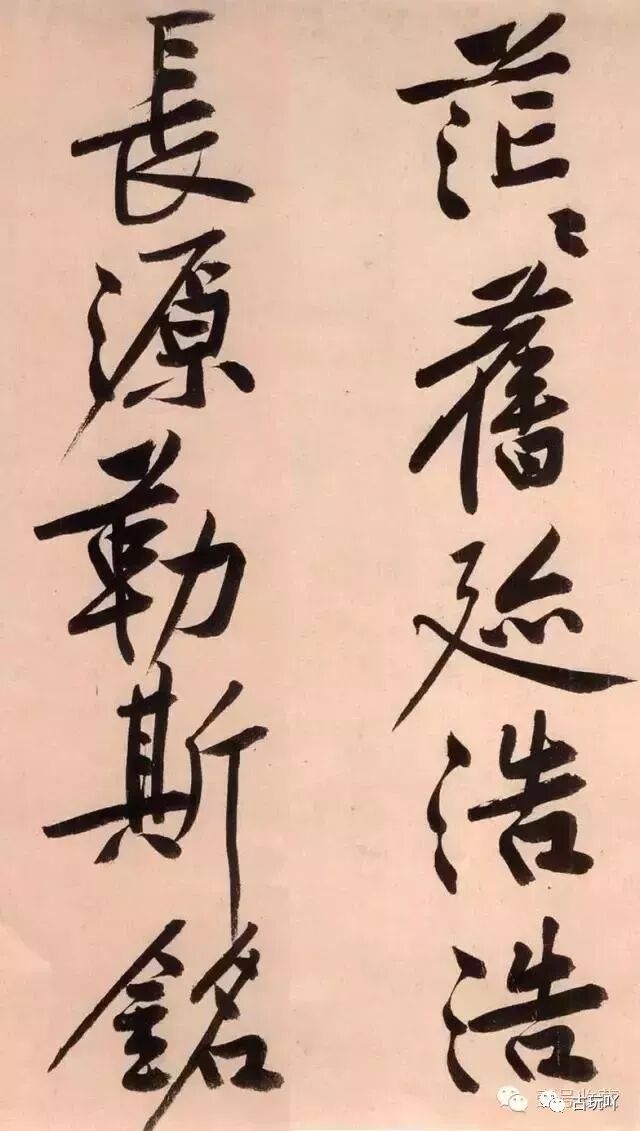 茫〻舊迹浩浩
長源勒斯銘
古玩吖